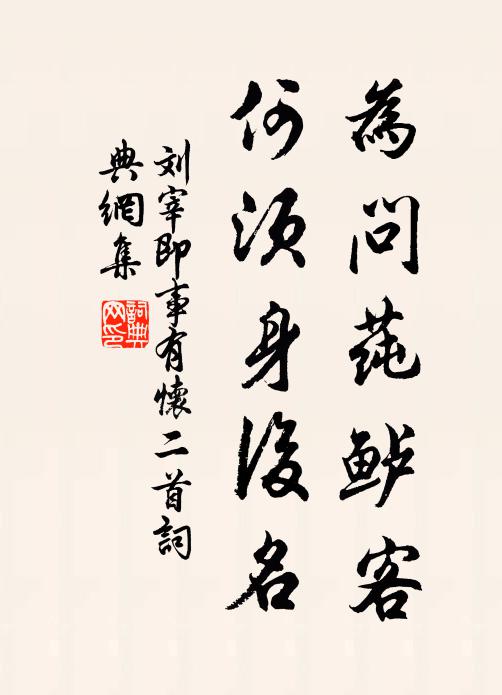 為問蒓鲈客
何須身後名
刘宰即事有懷二首詞
典網集
詞典
网印